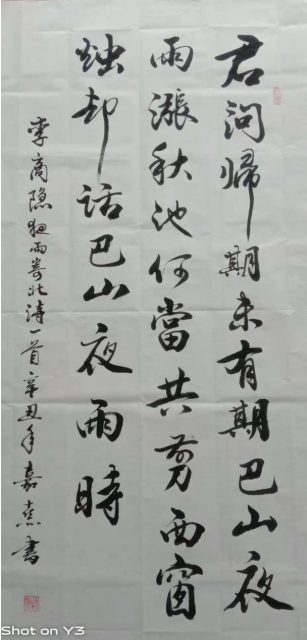 君问帰期未有期巴山夜
雨漲秋池何當共剪西窗
烛却话巴山夜雨時
李商隐夜雨寄北诗一首辛丑年嘉書
Shot on Y3